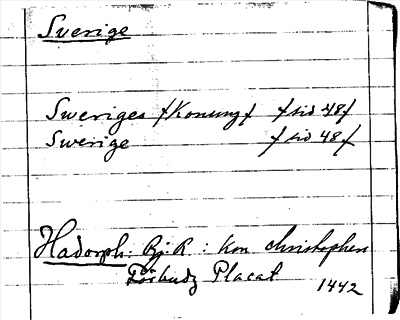 Sverige
Sweriges /Konung/ /sid 48/
Swerige /sid 48/
Hadorph: Bj. R: Kon Christophers
Förbudz Placat 1442